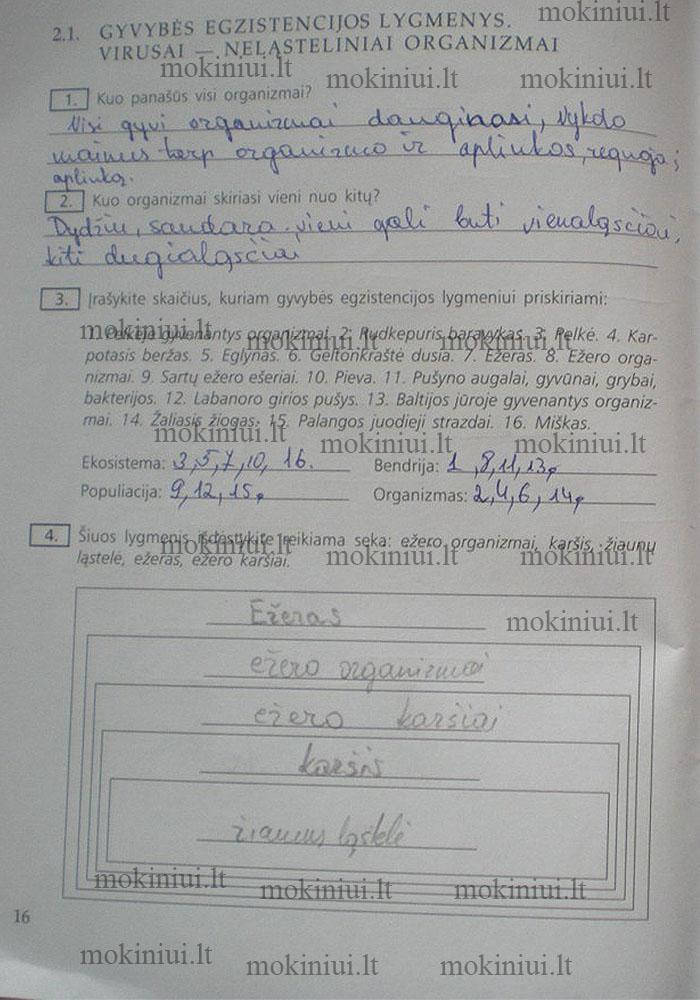 mokiniui.lt
2.1. GYVYBĖS EGZISTENCIJOS LYGMENYS.
VIRUSAI — NELĄSTELINIAI ORGANIZMAI
mokiniui.lt mokiniui.lt mokiniui.lt
1. Kuo panašūs visi organizmai?
Visi gyvi organizmai dauginasi, vykdo
mainus tarp organizmo ir aplinkos, reguoja į
aplinką.
2. Kuo organizmai skiriasi vieni nuo kitų?
Dydžiu, sandara. vieni gali buti vienaląsčiai,
kiti dugialąsčiai
3. Įrašykite skaičius, kuriam gyvybės egzistencijos lygmeniui priskiriami:
mokiniui.lt mokiniui.lt mokiniui.lt
1. Pelkėje gyvenantys organizmai. 2. Rudkepuris baravykas. 3. Pelkė. 4. Kar-
potasis beržas. 5. Eglynas. 6. Geltonkraštė dusia. 7. Ežeras. 8. Ežero orga-
nizmai. 9. Sartų ežero ešeriai. 10. Pieva. 11. Pušyno augalai, gyvūnai, grybai,
bakterijos. 12. Labanoro girios pušys. 13. Baltijos jūroje gyvenantys organiz-
mai. 14. Žaliasis žiogas. 15. Palangos juodieji strazdai. 16. Miškas.
mokiniui.lt mokiniui.lt mokiniui.lt
Ekosistema: 3,5,7,10, 16. Bendrija: 1,8,11,13,
Populiacija: 9,12,15, Organizmas: 2,4,6,14,
4. Šiuos lygmenis išdėstykite reikiama seka: ežero organizmai, karšis, žiaunų
ląstelė, ežeras, ežero karšiai.
mokiniui.lt mokiniui.lt mokiniui.lt
Ežeras
mokiniui.lt
ežero organizmai
ežero karšiai
karšis
žiaunus ląstelė
mokiniui.lt mokiniui.lt mokiniui.lt
16
mokiniui.lt mokiniui.lt mokiniui.lt